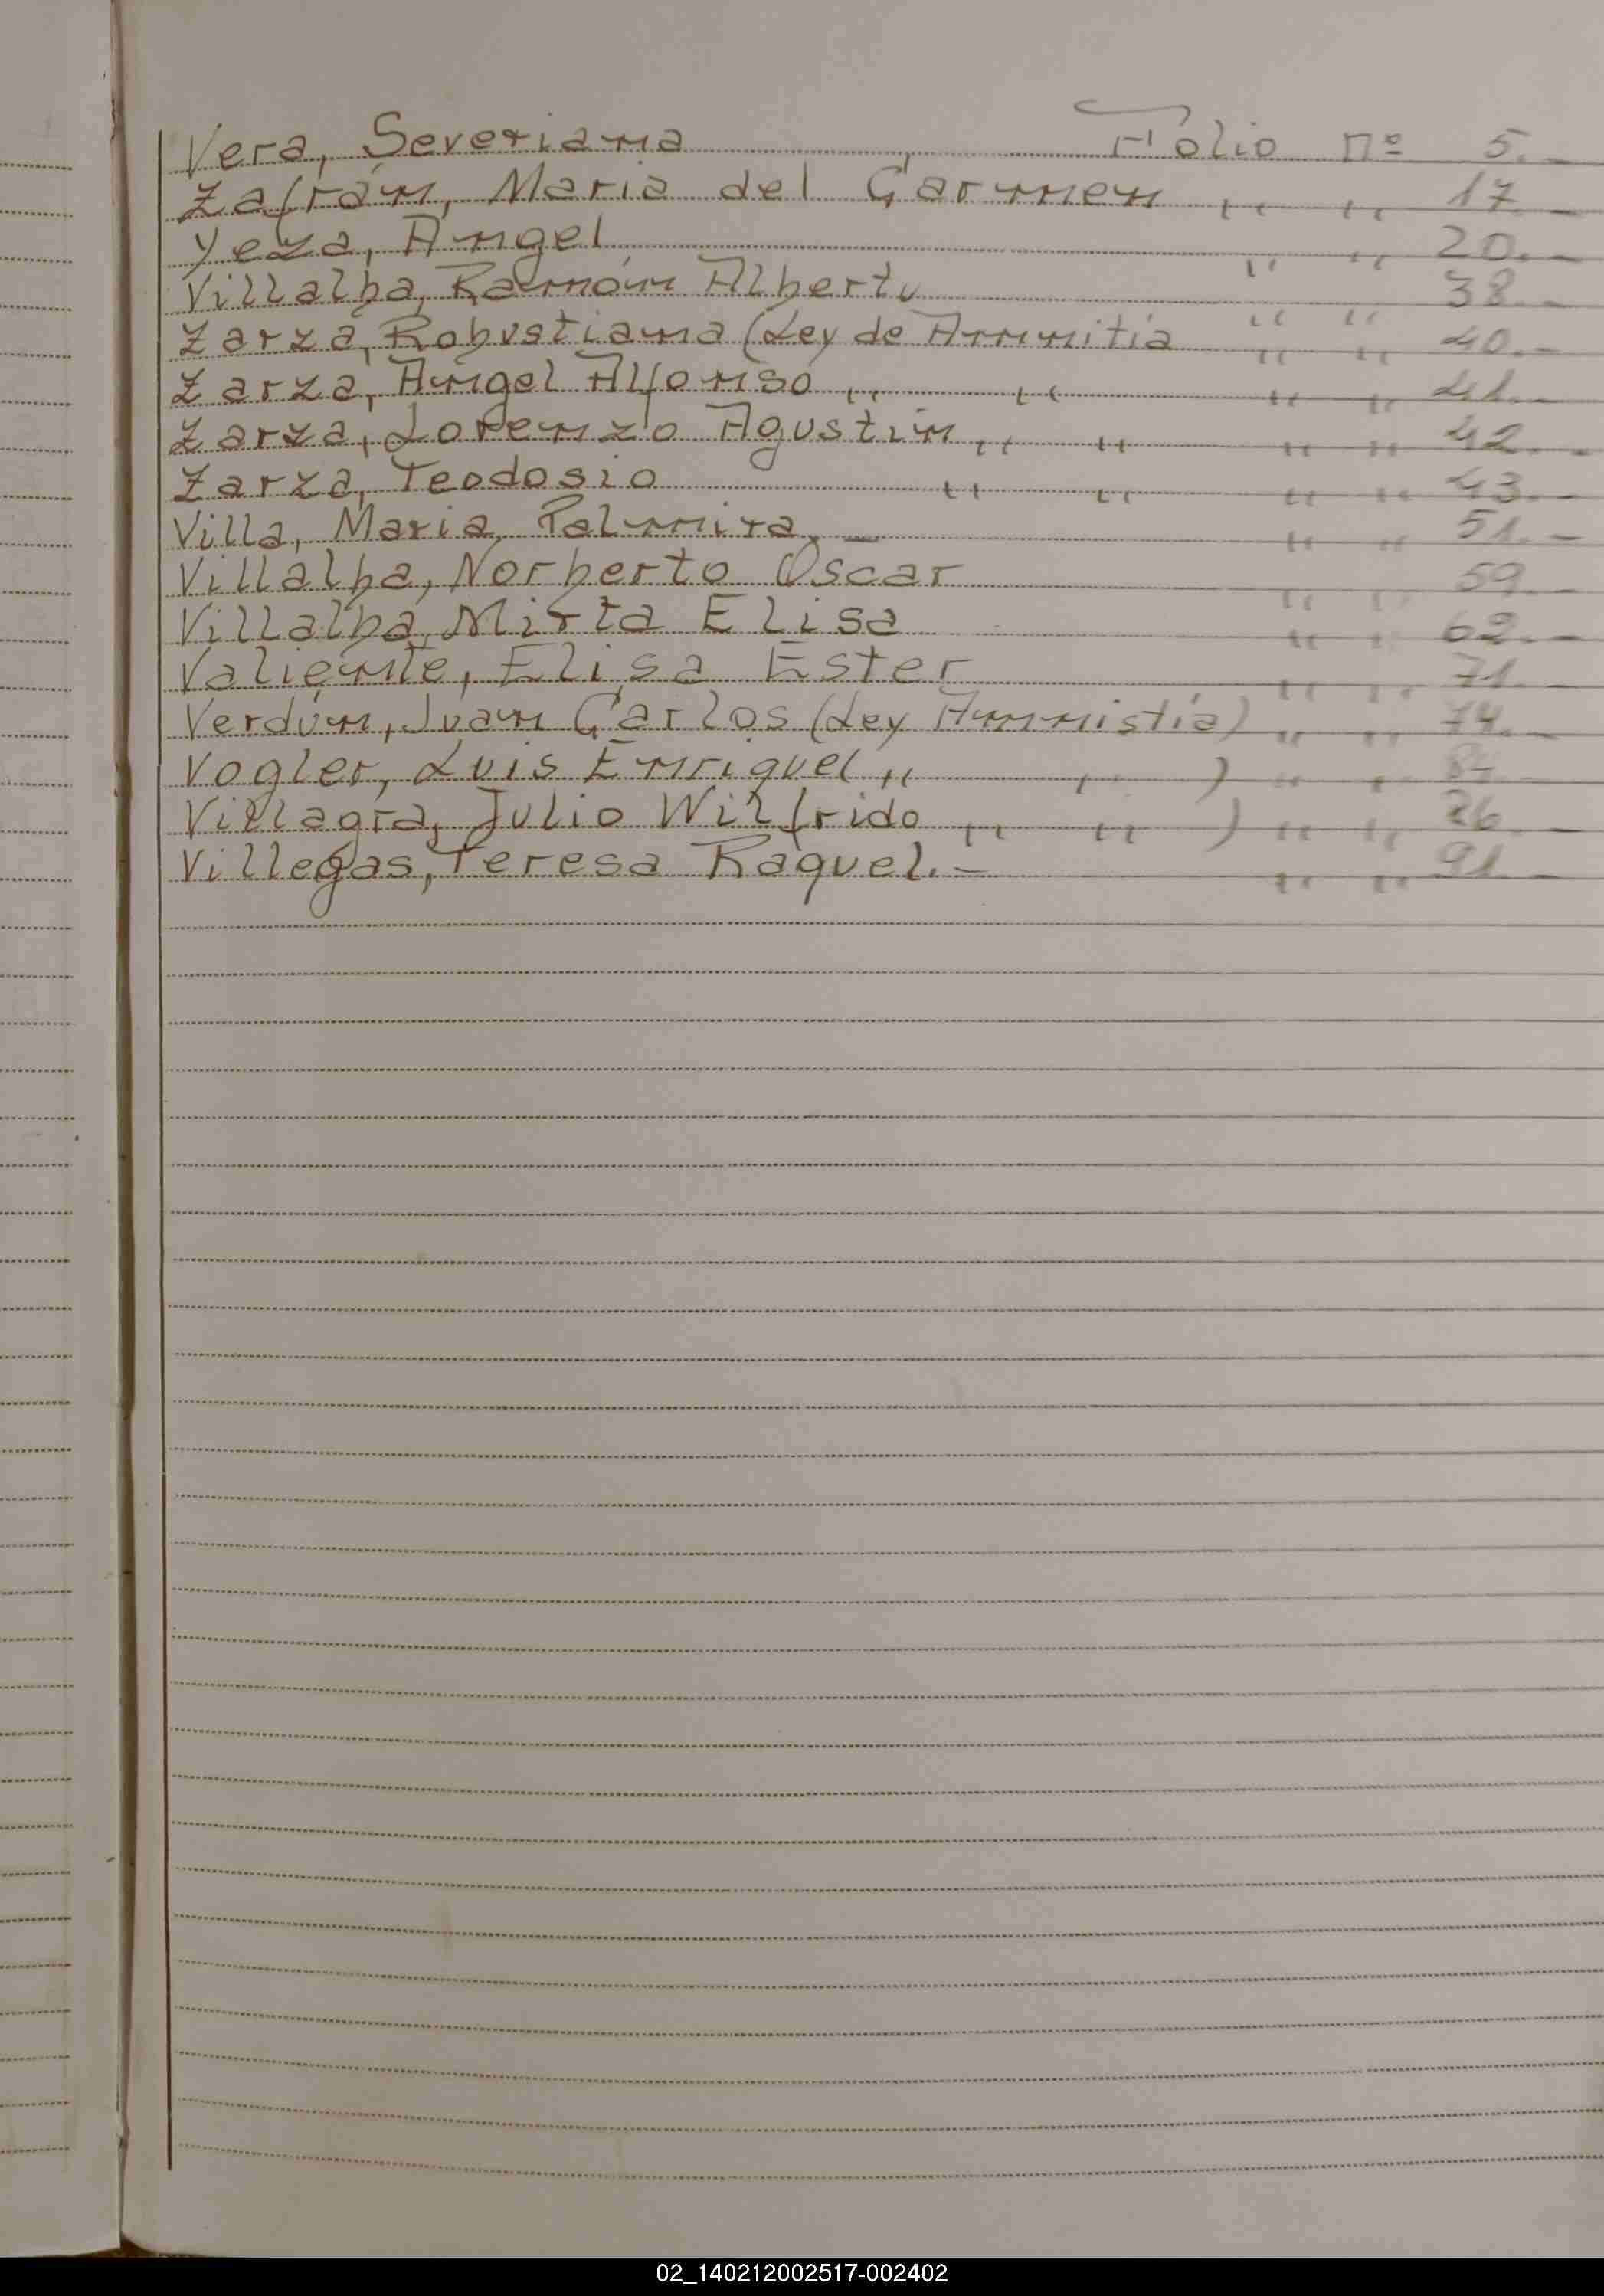 Vera, Severiana Folio nº 5.-
Zafrán, Maria del Carmen ,, ,, 17.-
Yeza, Angel ,, ,, 20.-
Villalba, Ramón Alberto ,, ,, 38.-
Zarza, Robustiana (Ley de Ammitia ,, ,, 40.-
Zarza, Angel Alfonso ,, ,, ,, ,, 41.-
Zarza, Lorenzo Agustin ,, ,, ,, ,, 42.-
Zarza, Teodosio ,, ,, ,, ,, 43.-
Villa, Maria Palmira.- ,, ,, 51.-
Villalba, Norberto Oscar ,, ,, 59.
Villalba, Mirta Elisa ,, ,, 62.-
Valiente, Elisa Ester ,, ,, 71.-
Verdún, Juan Carlos (Ley Ammistía) ,, ,, 74.-
Vogler, Luis Enrique( ,, ,, ) ,, ,, 84.
Villagra, Julio Wilfrido ,, ,, ) ,, ,, 86.-
Villegas, Teresa Raquel.- ,, ,, 91.-
02_140212002517-002402